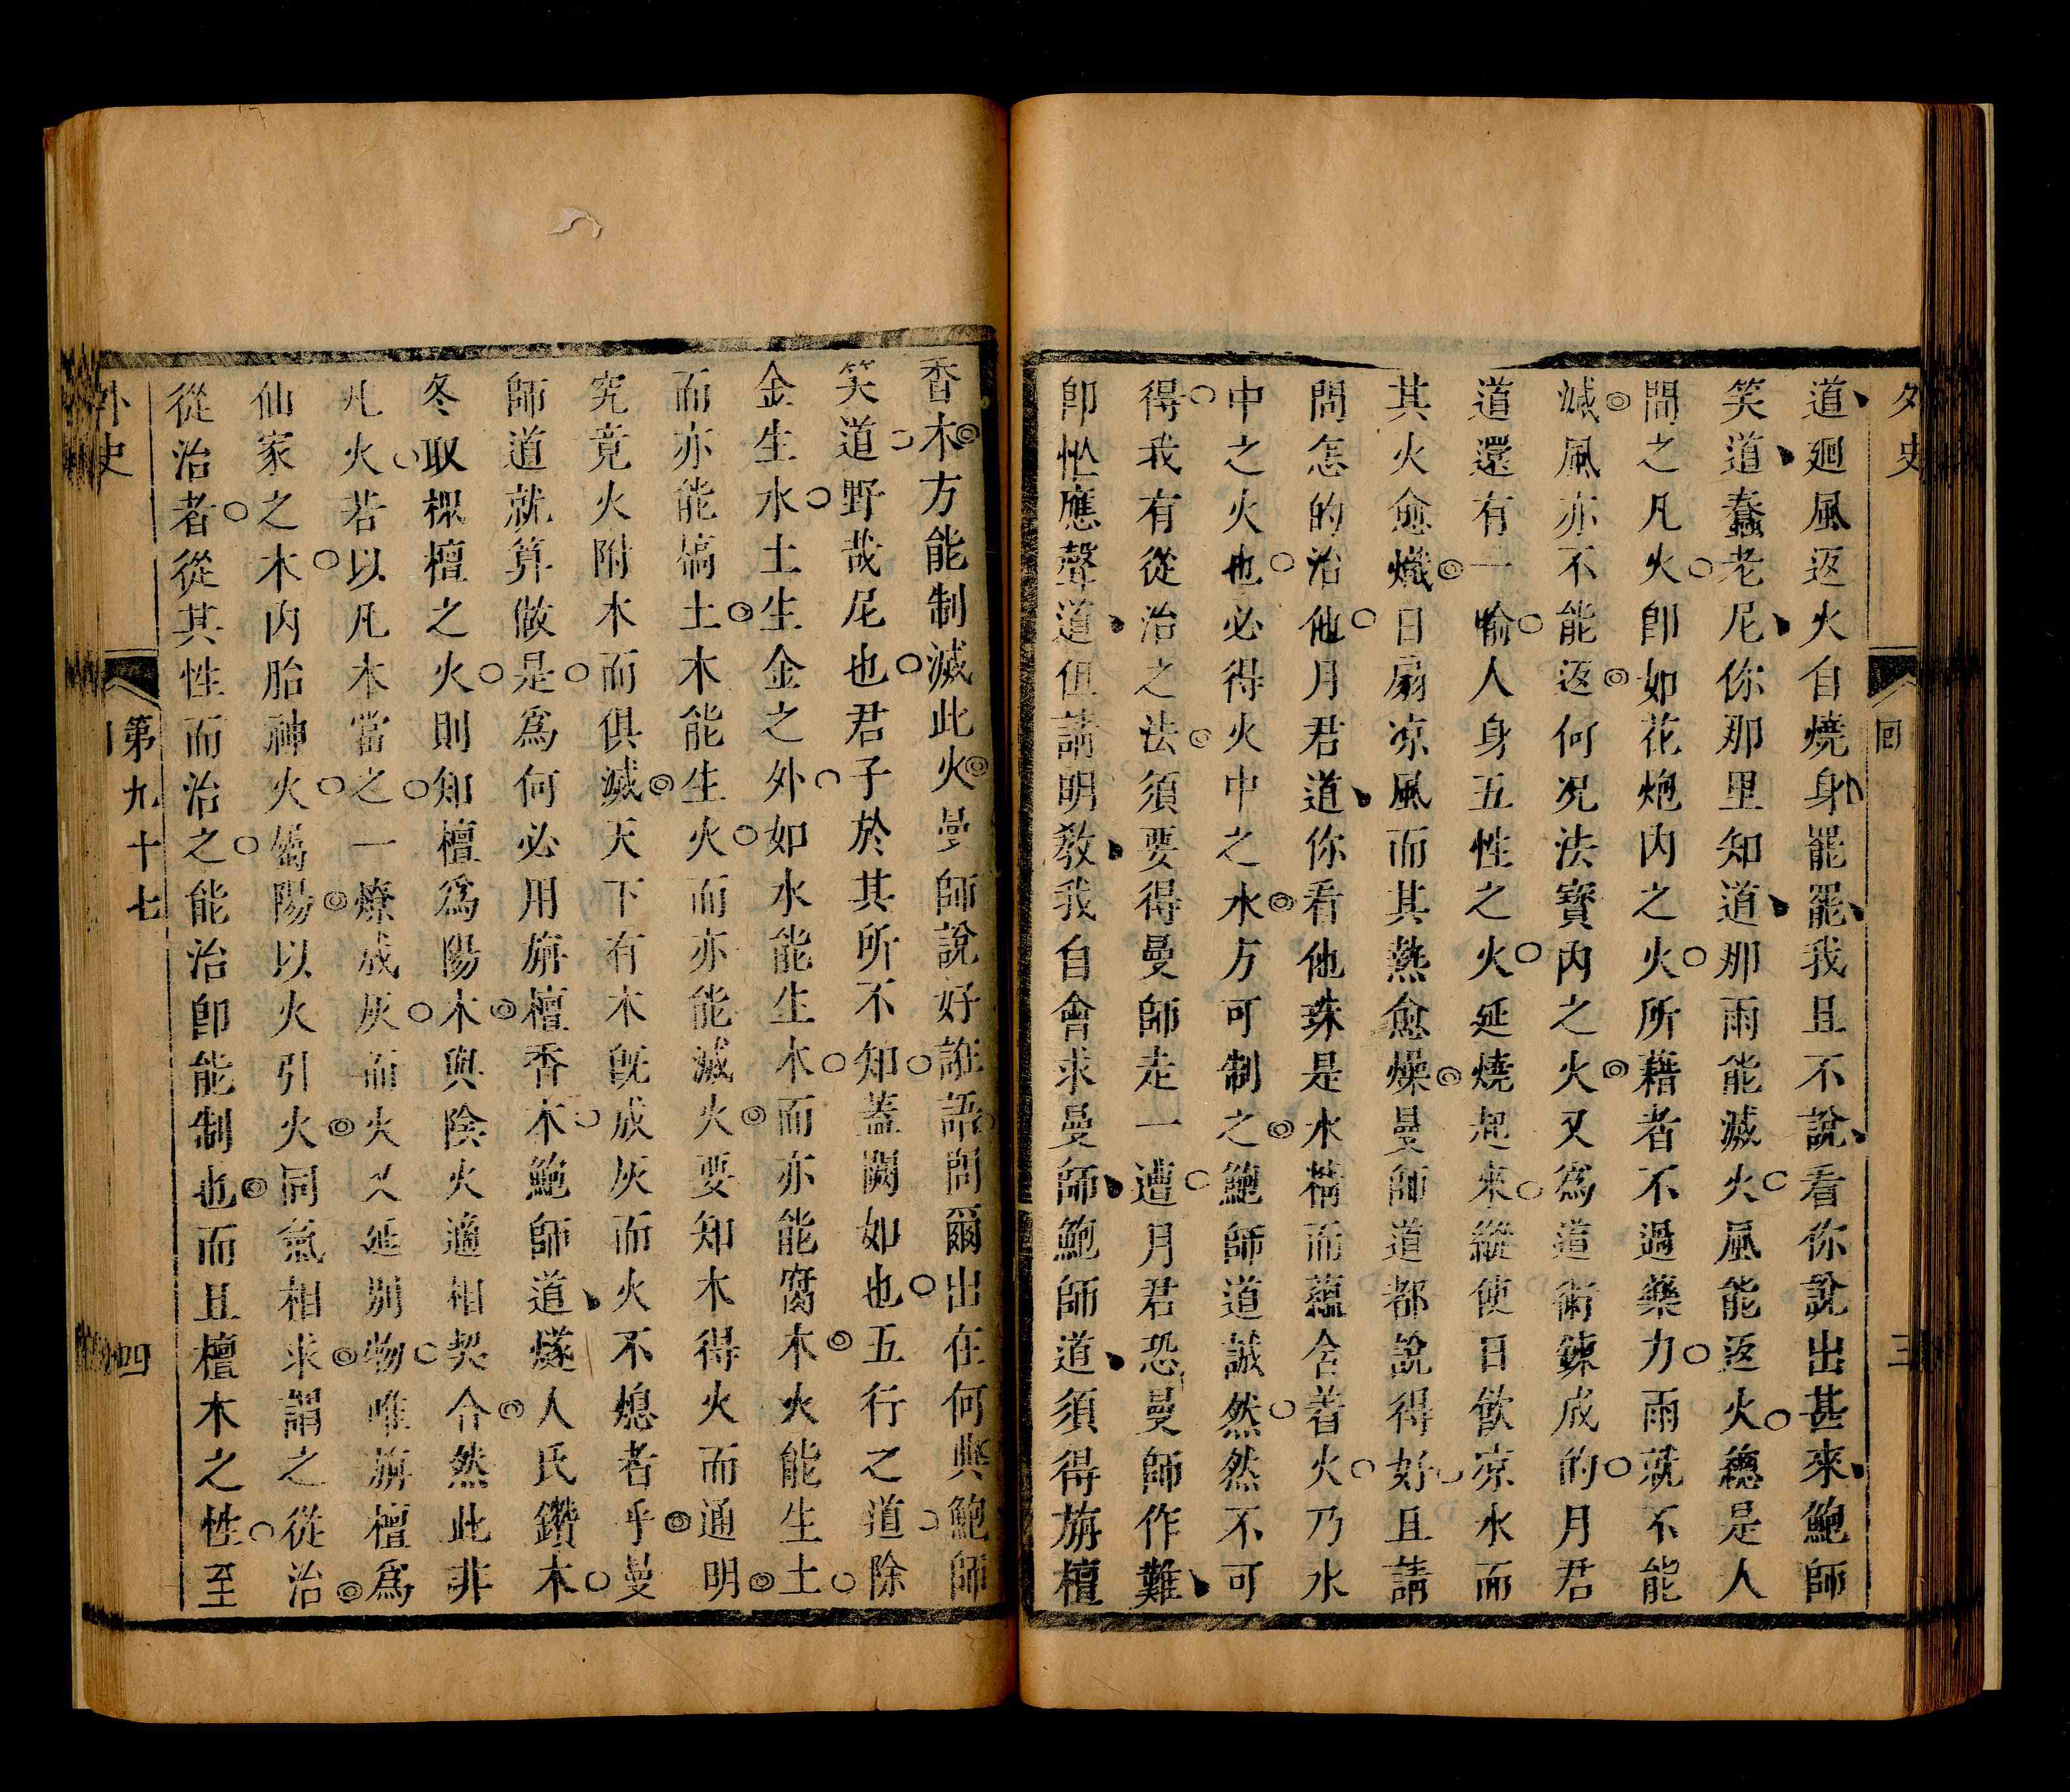 外史
回
三
道廻風返火自燒身罷罷我且不說看你說出甚來鮑師
笑道蠢老尼你那里知道那雨能滅火風能返火總是人
間之凡火卽如花炮内之火所藉者不過藥力雨就不能
滅風亦不能返何况法寶内之火又爲道術鍊成的月君
道還有一喻人身五性之火延燒起來縱使日飮凉水而
其火愈熾日扇凉風而其熱愈燥曼師道都說得好且請
問怎的治他月君道你看他珠是水精而蘊含着火乃水
中之火也必得火中之水方可制之鮑師道誠然然不可
得我有從治之法須要得曼師走一遭月君恐曼師作難
卽忙應聲道但請明教我自會求曼師鮑師道須得旃檀
香木方能制滅此火曼師說好誑語問爾出在何典鮑師
笑道野哉尼也君子於其所不知蓋闕如也五行之道除
金生水土生金之外如水能生木而亦能腐木火能生土
而亦能槁土木能生火而亦能滅火要知木得火而通明
究竟火附木而俱滅天下有木旣成灰而火不熄者乎曼
師道就算做是爲何必用旃檀香木鮑師道燧人氏鑽木
冬取檀之火則知檀爲陽木與陰火適相契合然此非
凡火若以凡木當之一燎成灰而火又延別物唯旃檀爲
仙家之木内胎神火屬陽以火引火同氣相求謂之從治
從治者從其性而治之能治卽能制也而且檀木之性至
外史
第九十七
四